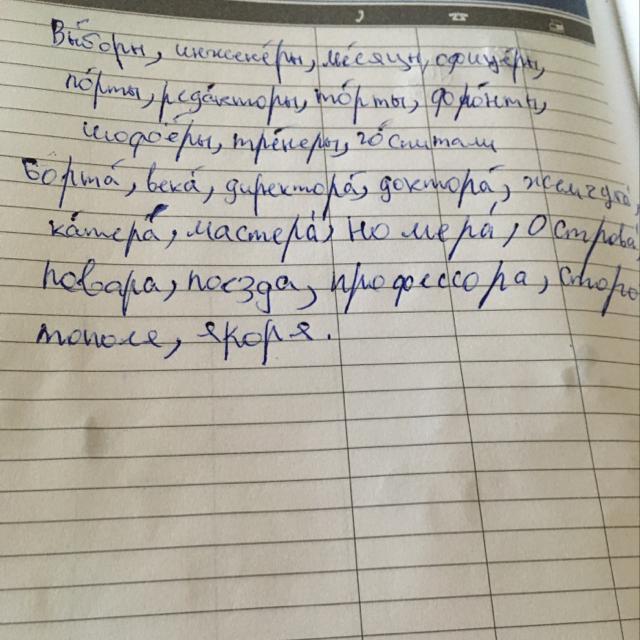 Вы́боры, инжене́ры, ме́сяцы, офице́ры,
по́рты, реда́кторы, то́рты, фро́нты,
шофёры, тре́неры, го́спитали
Борта́, века́, директора́, доктора́, жемчуга́,
катера́, мастера́, номера́, Острова́
повара, поезда, профессора, сторо
тополя, якоря.